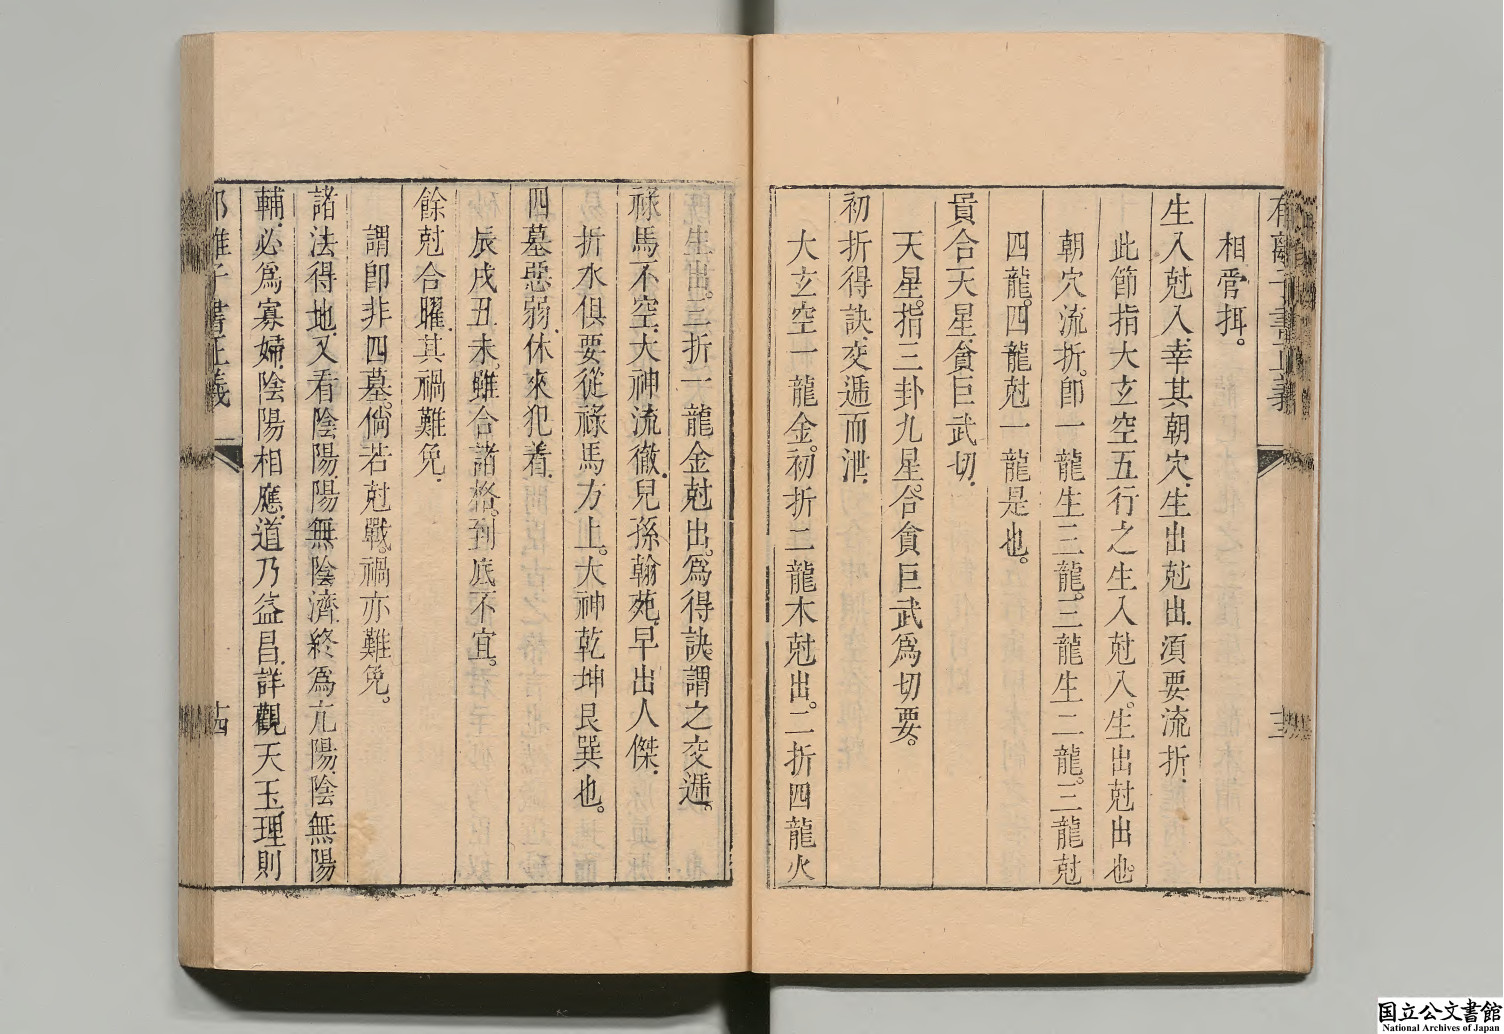 相霄挕。
生入尅入。幸其朝穴。生出尅出。湏要流折。
此節指大玄空五行之生入尅入。生出尅出也。
朝穴流折。卽一龍生三龍。三龍生二龍。二龍尅
四龍。四龍尅一龍是也。
貴合天星。貪巨武切。
天星。指三卦九星。合貪巨武爲切要。
初折得訣。交遞而泄。
大玄空一龍金。初折二龍木尅出。二折四龍火
旣生出。三折一龍金尅出。爲得訣。謂之交遞。
祿馬不空。大神流徹。兒孫翰苑。早出人傑。
折水俱要從祿馬方上。大神乾坤艮巽也。
四墓惡弱。休來犯着。
辰戌丑未。雖合諸格。到底不宜。
餘尅合曜。其禍難免。
謂卽非四墓。倘若尅戰。禍亦難免。
諸法得地。又看陰陽。陽無陰濟。終爲亢陽。陰無陽
輔。必爲寡婦。陰陽相應。道乃益昌。詳觀天玉。理則
十四
国立公文書館
National Archives of Japan